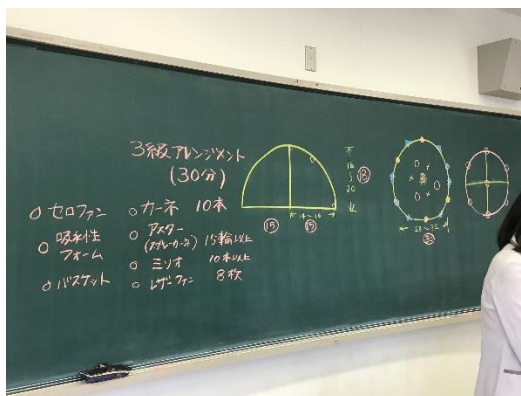 3級アレンジメント
(30分)
○セロファン
○吸水性
フォーム
○バスケット
○カーネ 10本
○アスター
(スプレーカーネ) 15輪以上
○ミリオ 10本以上
○レザーファン 8枚
⑮
14〜16
⑮
18
〜
20
⑱
28〜32
㉚